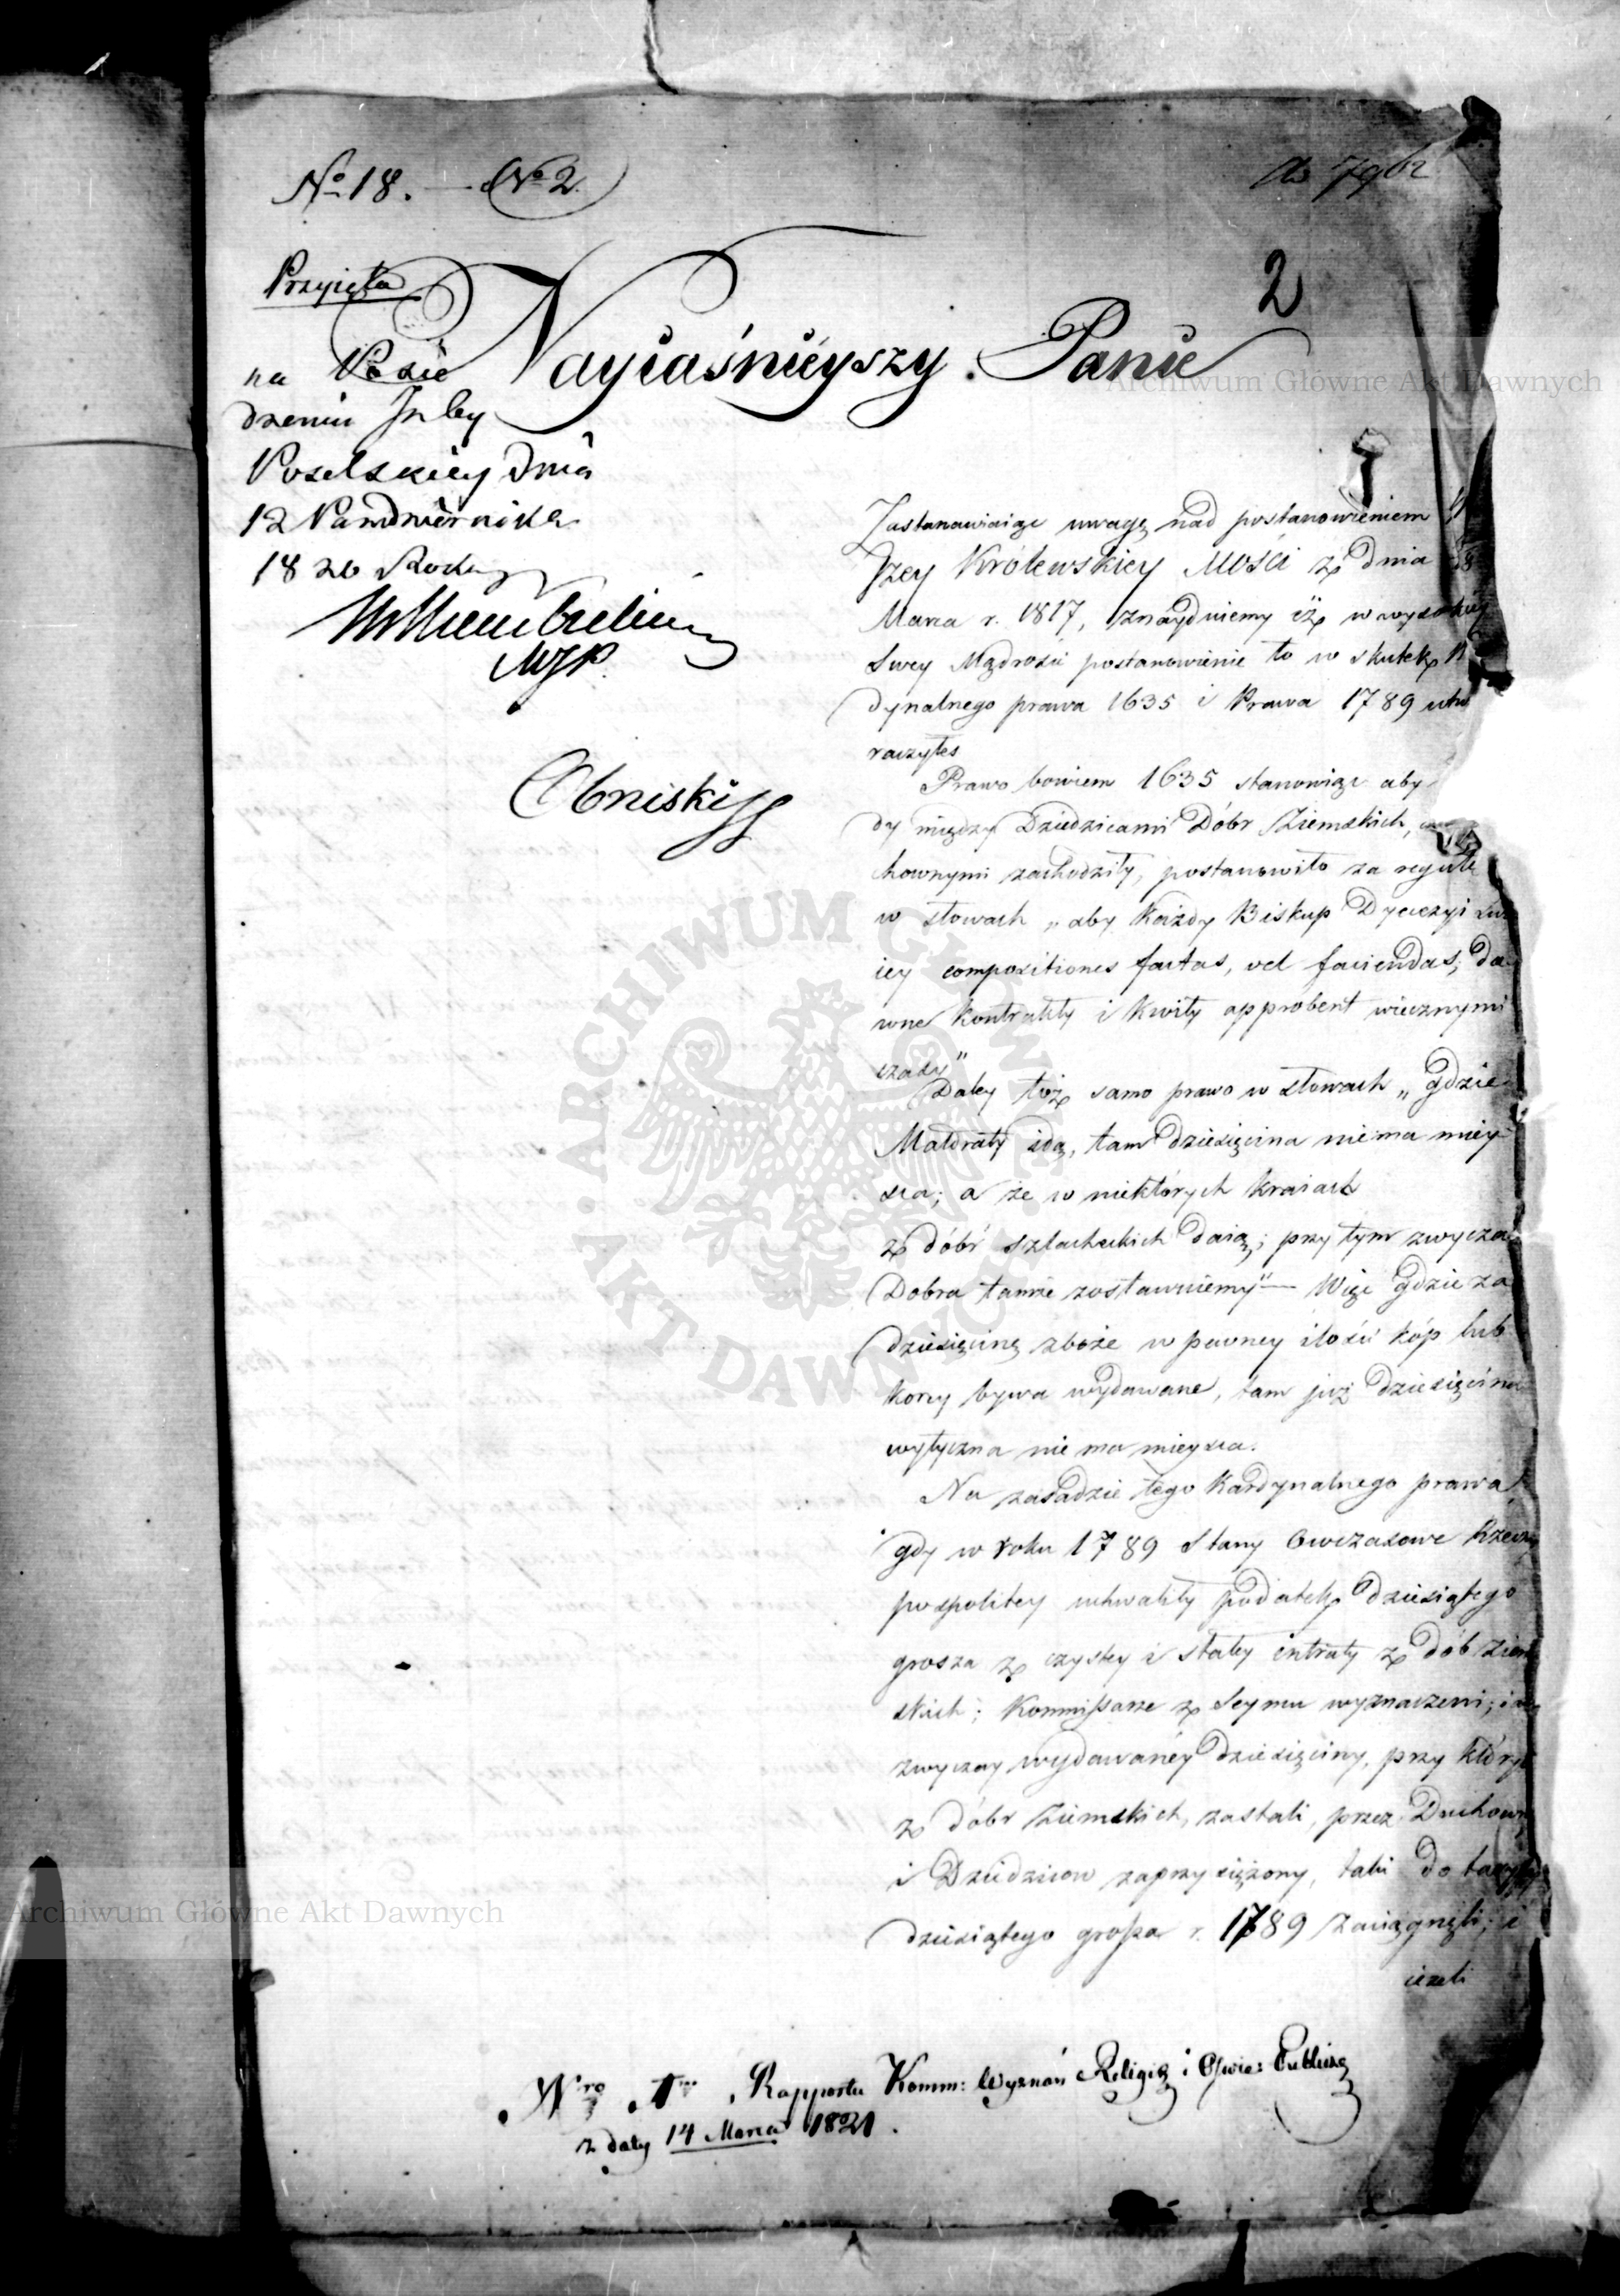 No 18. — No 2.
No 7962
2
Przyięta
na Posie
dzeniu Izby
Poselskiey Dnia
12 Pazdziernika
1820 Roku
MJP.
Nayiaśnieyszy Panie
Zastanawiaiąc uwagę nad postanowieniem
Jzey Królewskiey Mości z dnia
Marca r. 1817, znayduiemy iż w wysokiey
Swey Mądrości postanowienie to w skutek
dynalnego prawa 1635 i Prawa 1789
raczyłeś
Prawo bowiem 1635 stanowiąc aby
dy między Dziedzicami Dóbr Ziemskich,
chownymi zachodziły, postanowiło za regułę
w słowach „aby każdy Biskup Dyecezyi
iey compositiones factas, vel faciendas; da
wne kontrakty i kwity approbent wiecznymi
czasy"
Daley toż samo prawo w słowach „gdzie
Maldraty idą, tam dziesięcina niema miey
sca; a że w niektórych kraiach
z dóbr szlacheckich daią; przy tym zwycza
Dobra tamże zostawuiemy" — Więc gdzie za
dziesięcinę zboże w pewney ilości kóp lub
korcy bywa wydawane, tam iuż dziesięcina
wytyczna nie ma mieysca.
Na zasadzie tego Kardynalnego prawa
gdy w roku 1789 Stany Owczasowe Rzeczy
pospolitey uchwaliły podatek dziesiątego
grosza z czystey i stałey intraty z dób ziem
skich; Kommissarze z Seymu wyznaczeni;
zwyczay wydawanéy dziesięciny, przy któr
z dóbr Ziemskich, zastali, przez Duchown
i Dziedziców zaprzysiężony, taki do
dziesiątego grosza r. 1789 zaciągnęli; i
ieżeli
Nro 1mo Rapportu Komm: Wyznań Religij i Oświe: Publiczn
z daty 14 Marca 1821.